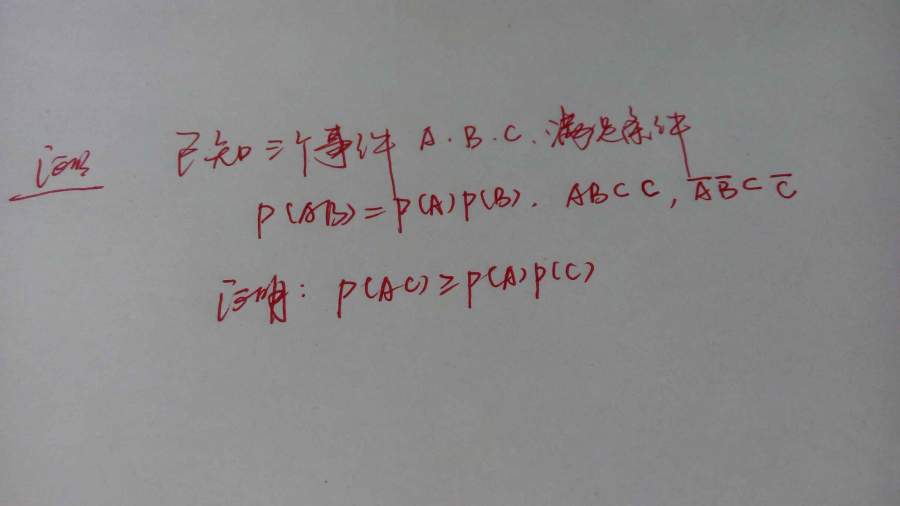 证明 已知三个事件 A.B.C.满足条件
P(AB)=P(A)P(B). AB⊂C, A̅B̅⊂C̅
证明: P(AC)≥P(A)P(C)